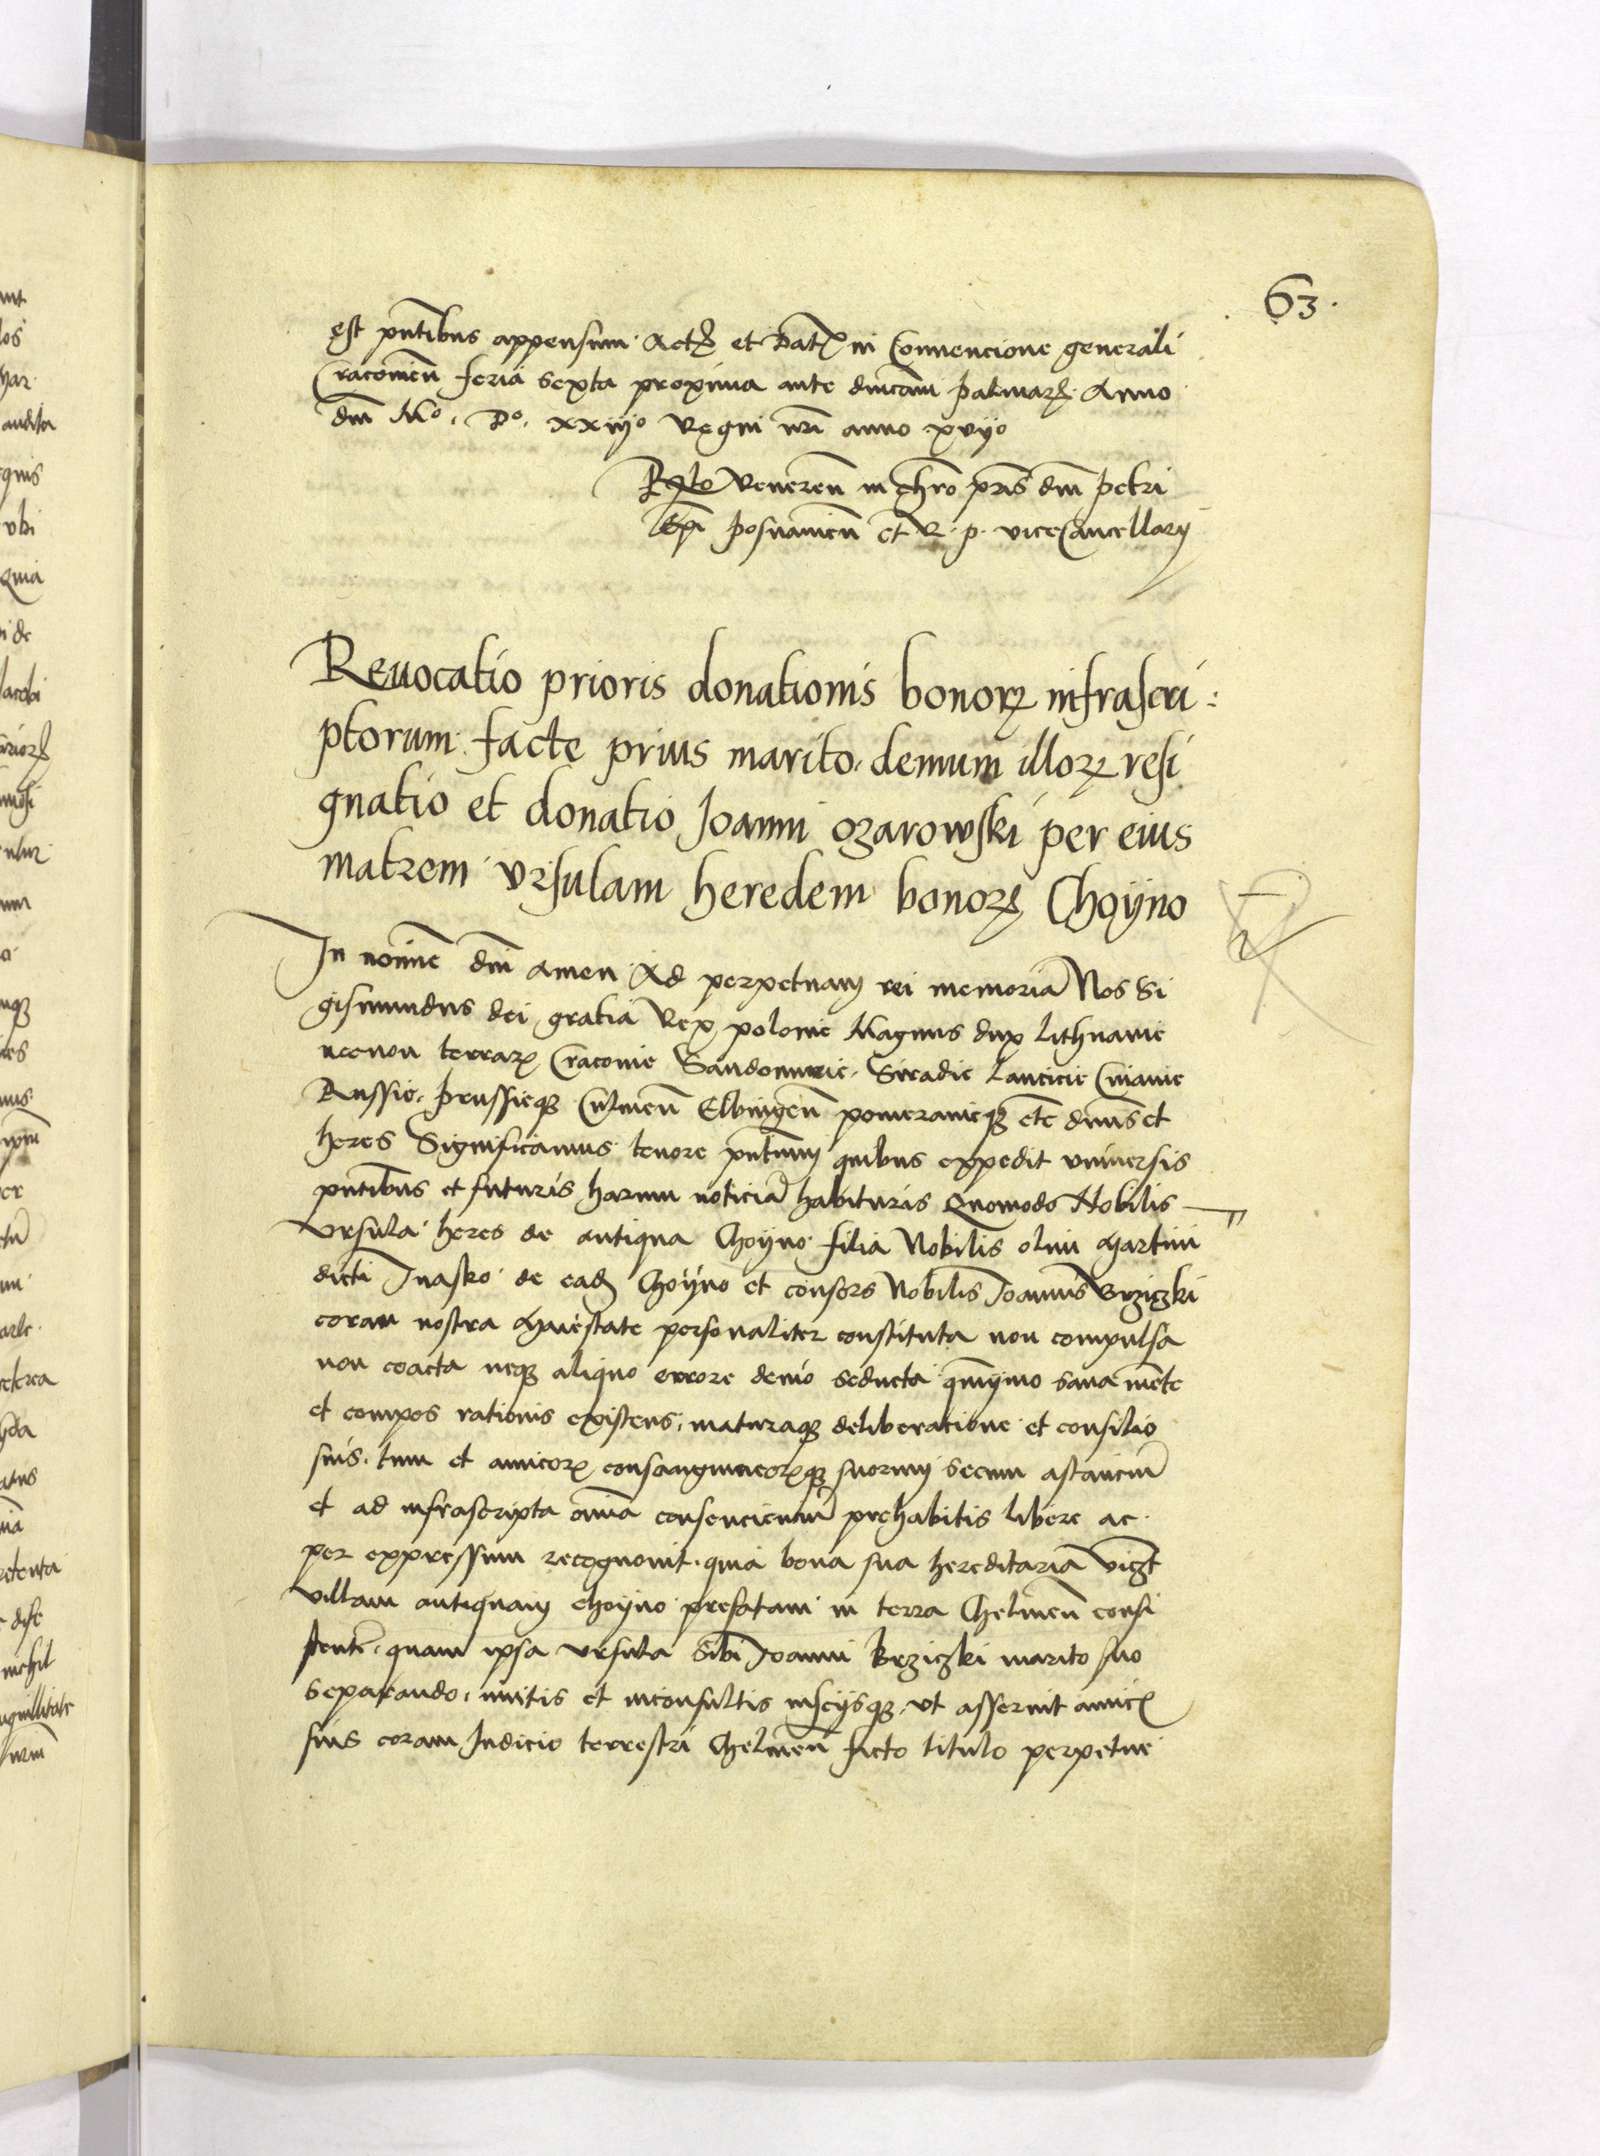 63.
est pntibus appensum. Actū et Datū in Convencione generali
Cracovien̄ feria sexta proxima ante dnicam palmarꝝ. Anno
dni Mo. Do. xxiijo Regni nri anno xvijo
Rlo Veneren̄ in chro pris dni petri
Epi posnanien̄ et R. p. viceCancellarij
Reuocatio prioris donationis bonorꝝ infrascri:
ptorum. facte prius marito. demum illorꝝ resi
gnatio et donatio Joanni ozarowski per eius
matrem vrsulam heredem bonorꝝ Choyno
In nomine dni Amen. Ad perpetuam rei memoriā Nos Si
gismundus dei gratia Rex polonie Magnus dux Lithuanie
necnon terrarꝝ Cracovie Sandomirie. Siradie Lancicie Cuiavie
Russie. prussieqꝫ Culmen̄ Elbingen̄ pomeranieqꝫ etc dnus et
heres Significamus tenore pntium quibus expedit vniversis
pntibus et futuris harum noticiā habituris Quomodo Nobilis
vrsula heres de antiqua Choyno filia Nobilis olim Martini
dicti Ivasko de eadꝫ Choyno et consors Nobilis Joannis Brziczki
coram nostra Maiestate personaliter constituta non compulsa
non coacta neqꝫ aliquo errore devio seducta qmymo sana mēte
et compos rationis existens. maturaqꝫ deliberatione et consilio
suis. tum et amicorꝝ consanguineorꝝqꝫ suorum secum astanciū
et ad infrascripta omia conscenciū prehabitis libere ac
per expressum recognovit. quia bona sua hereditaria vicꝫt
villam antiquam choyno prefatam in terra Chelmen̄ consi
stentē. quam ipsa vrsula sibi Joanni Brziczki marito suo
separando. invitis et inconsultis inscijsqꝫ. vt asseruit amicꝭ
suis coram Judicio terrestri Chelmen̄ facto titulo perpetue